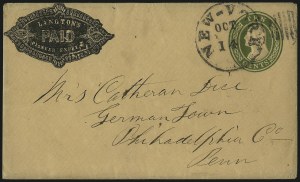 LINGTON'S
PAID
PIONEER EXPRESS
NEW-YORK
OCT
CENTS
Mrs Catheran Dice
German Town
Philadelphia Co
Penn